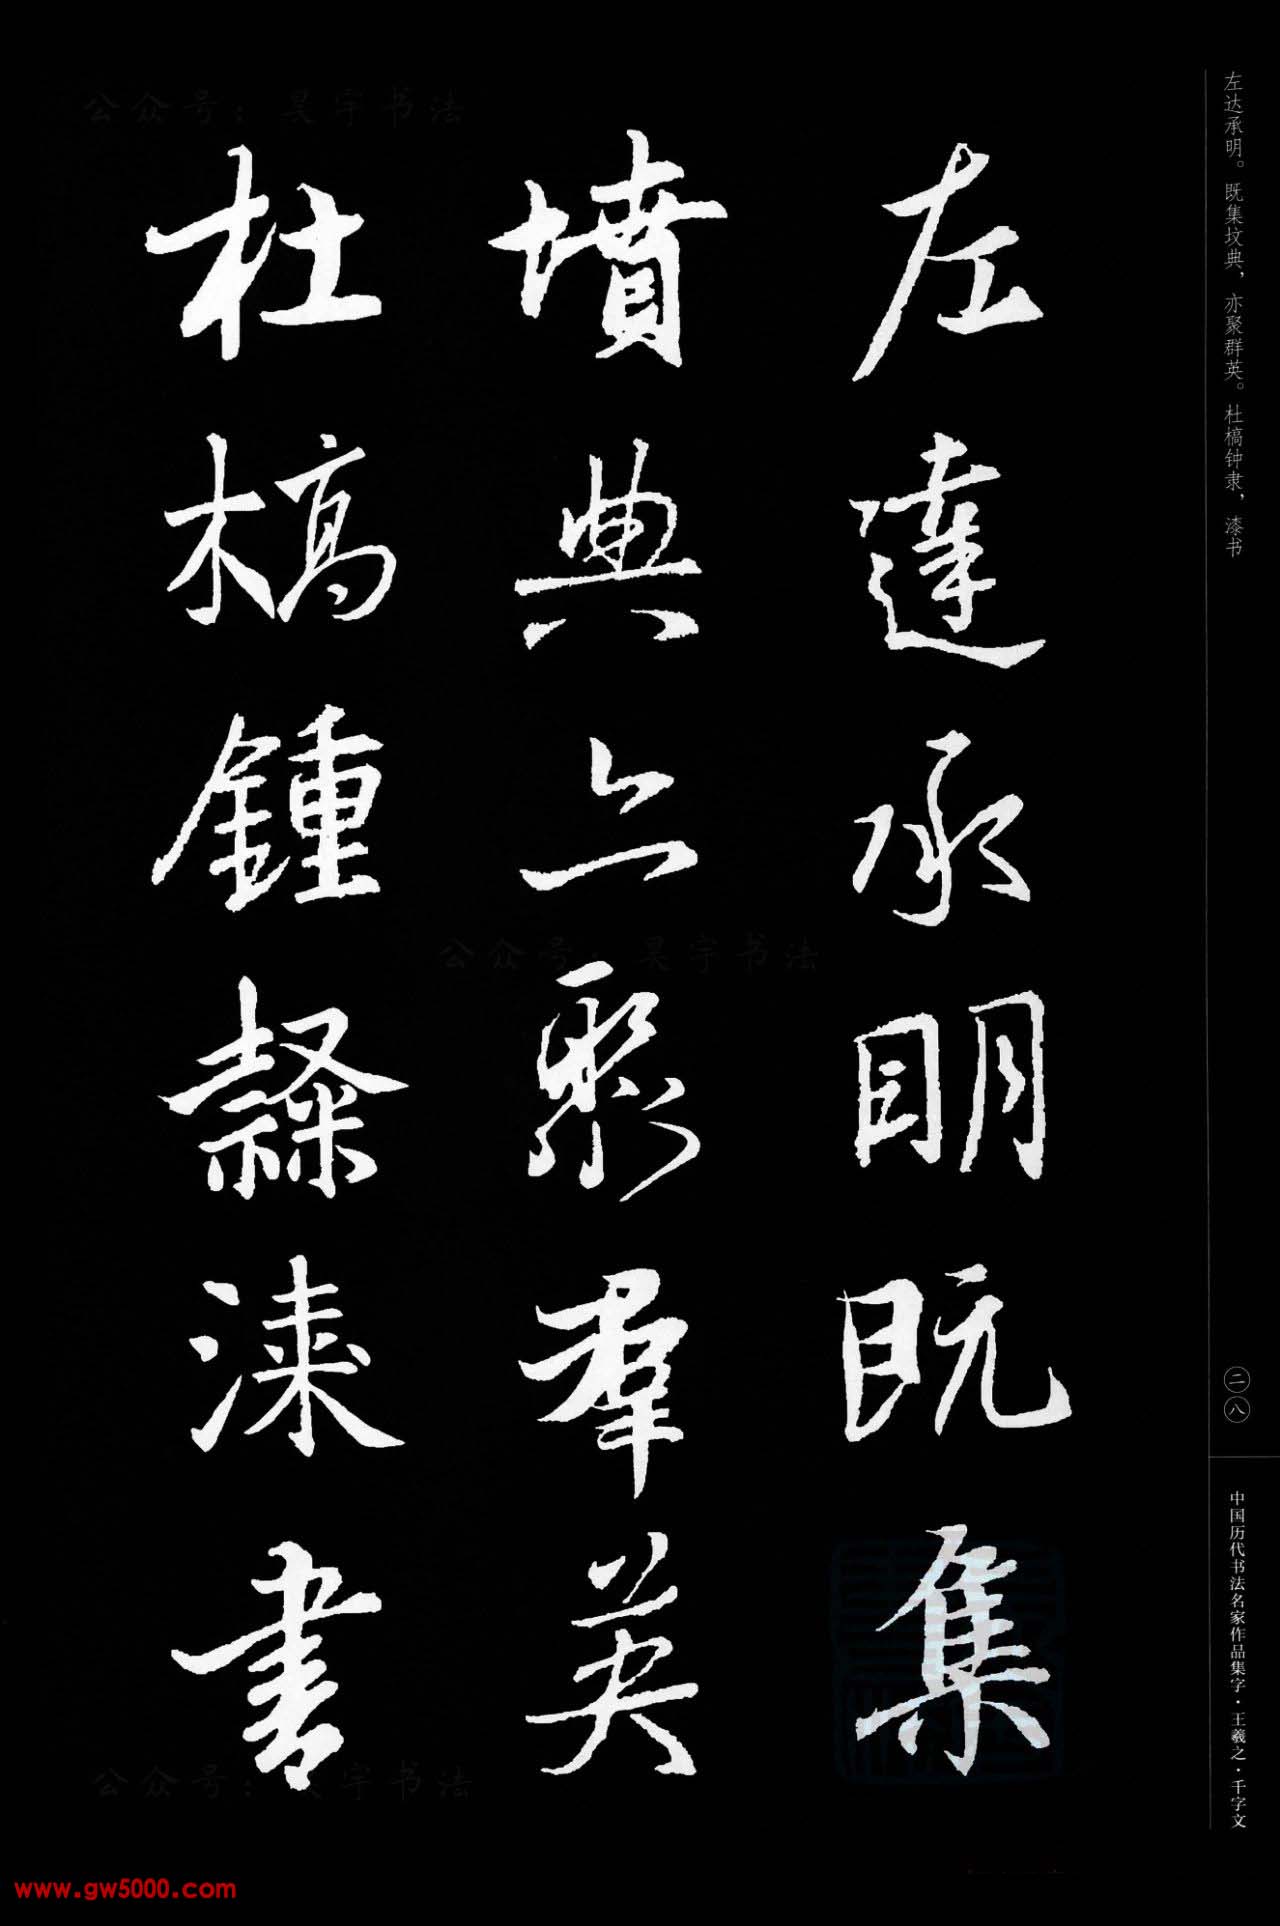 左達承明既集
墳典亦聚羣英
杜槁鍾隸漆書
左达承明。既集坟典，亦聚群英。杜槁钟隶，漆书
二八
中国历代书法名家作品集字·王羲之·千字文
公众号：昊宇书法
公众号：昊宇书法
公众号：昊宇书法
www.gw5000.com